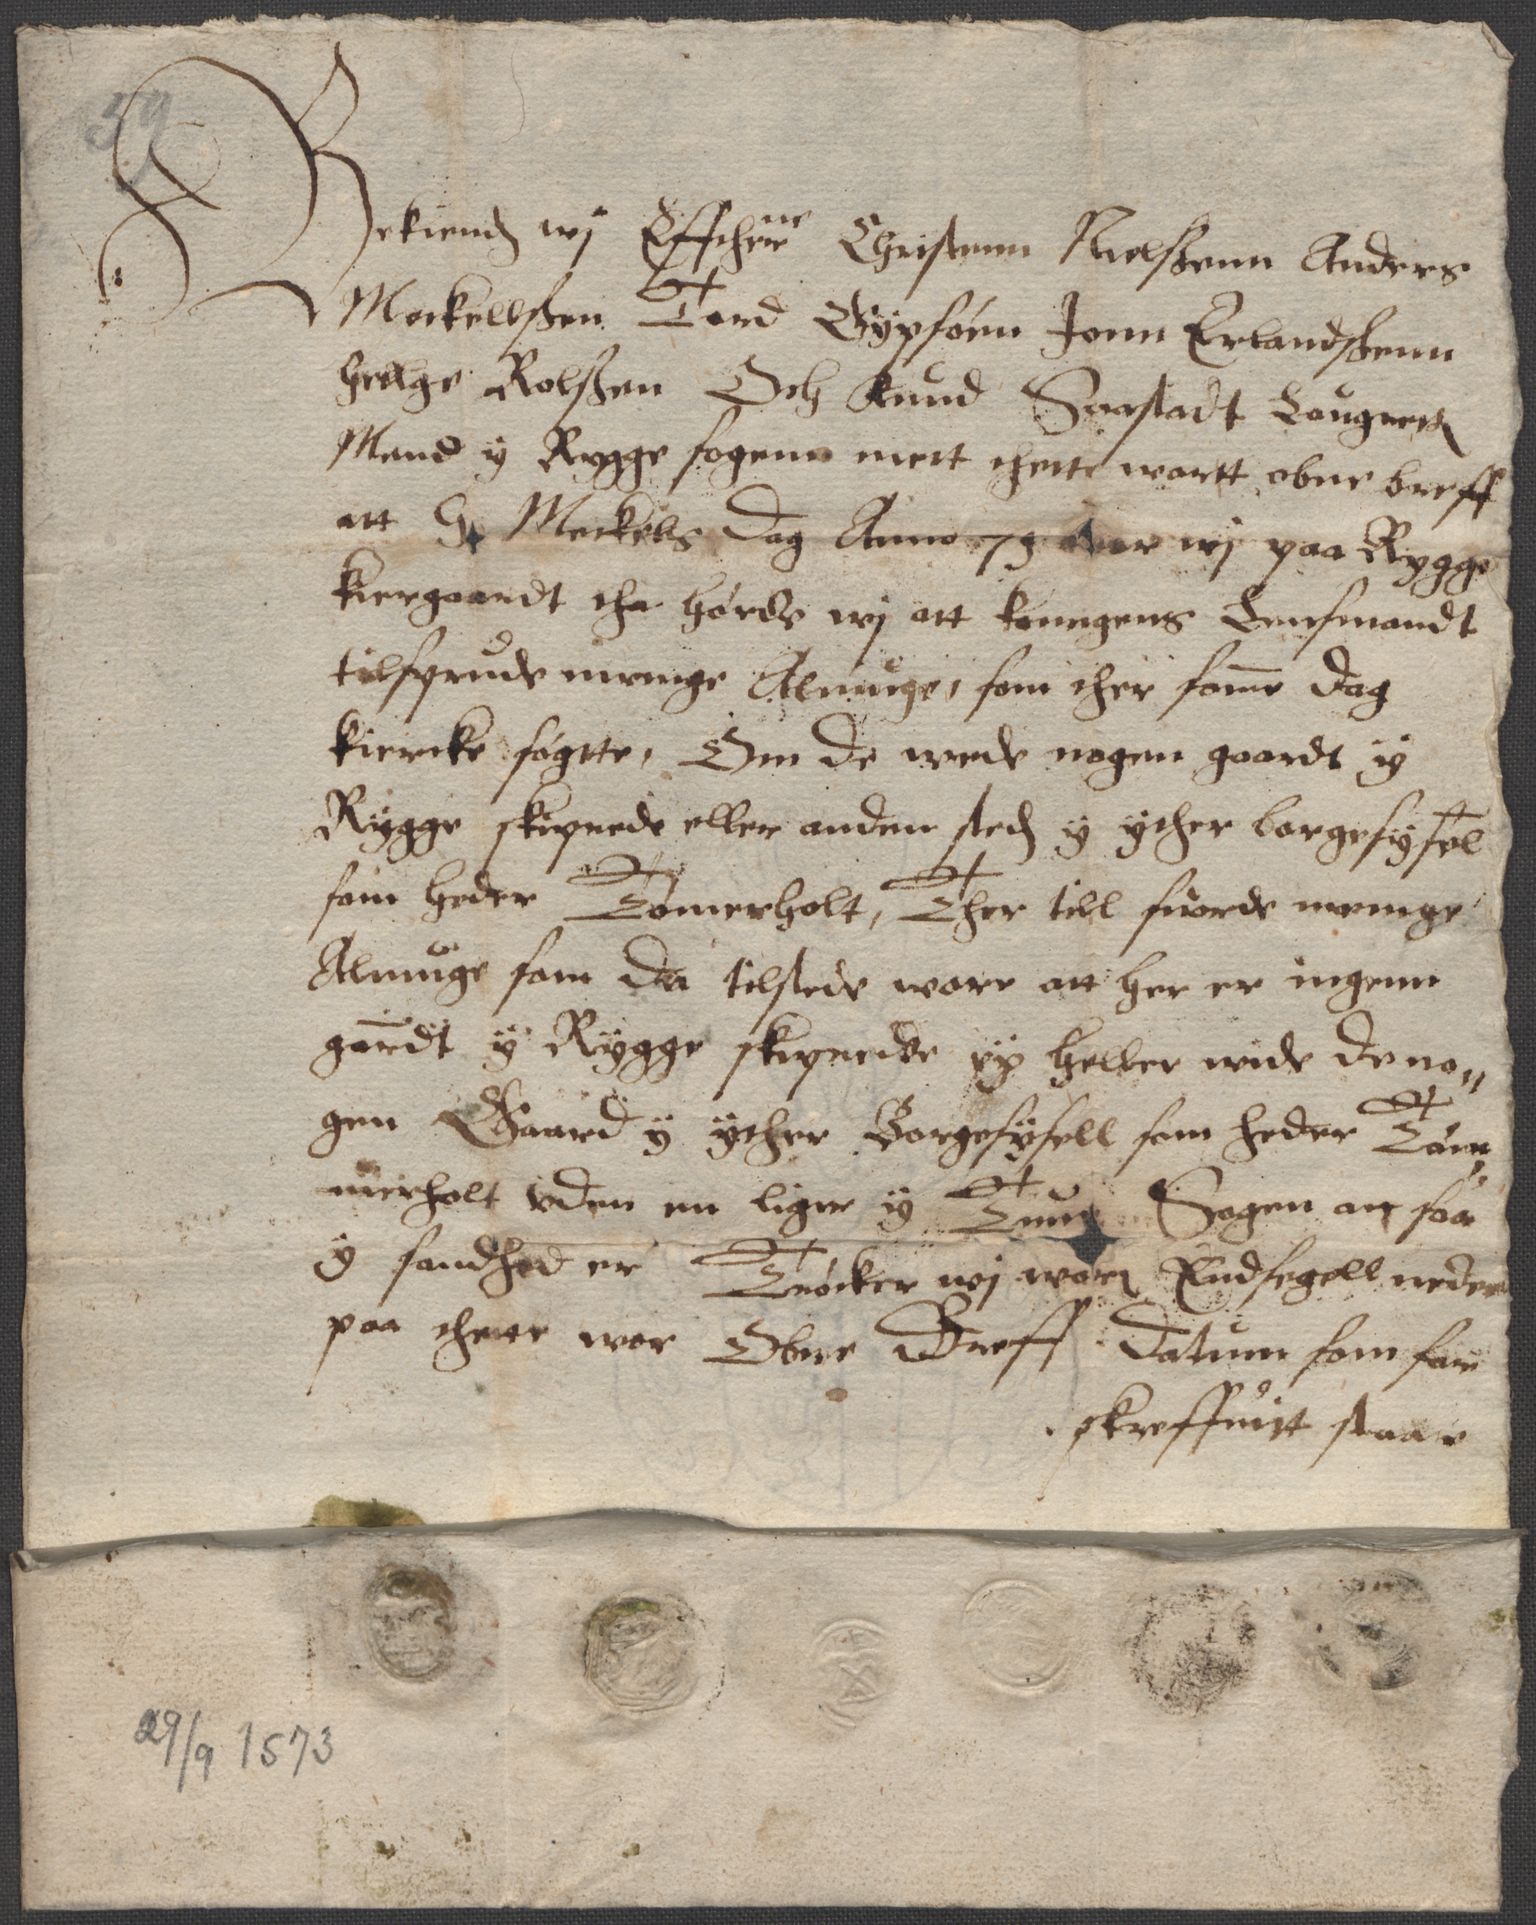 59
Bekiend wj Effthr̃ne Christenn Nielßenn Anders
Meckellßen Tord Gypsøen Jonn Erlandßenn
Hellge Rolßen Och knud Saastadt Lougrett
Mend y Rygge sogenn mett thette wortt obne breff
att S. Meckels dag Anno 73 wor wj paa Rygge
kiergaardt tha hørde wj att kongens Lensmandt
tilspurde menige Almuge, som ther same dag
kiercke søgtte, Om de wede nogen gaardt y
Rygge skipnede eller anden sted y yther borgesysel
som heder Tømerholt, Ther till suorde menige
Almuge som da tilstede wore att her er ingenn
gardt y Rygge skipnede ey heller wide de no„
gen Gaard y yther Borgesysell som heder Tøm„
merholt vden en liger y Tune Sogen att saa
y sandhed er Trøcker wj worj Endsegell neden
paa thette wor Obne Breff Datum som for
skreffuitt staar
29/9 1573